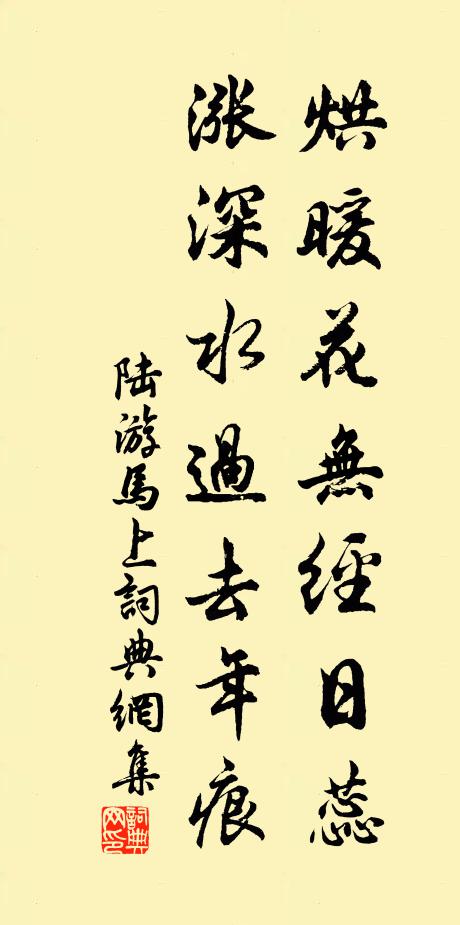 烘暖花無經日蕊
漲深水過去年痕
陆游馬上詞典網集
詞典网印